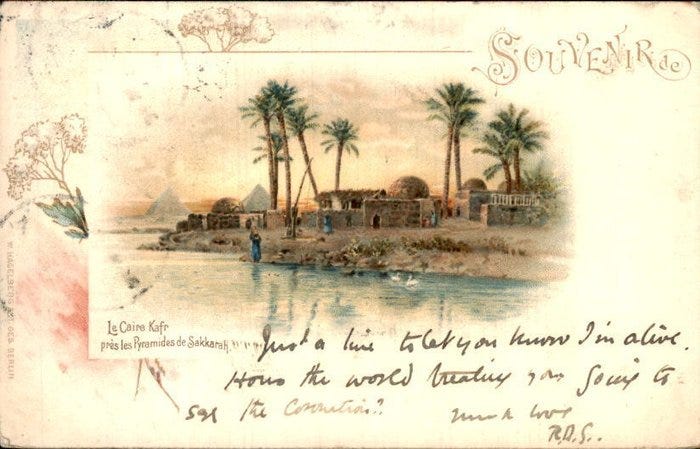 SOUVENIR de
W. HAGELBERG AKT. GES. BERLIN
Le Caire Kafr
près les Pyramides de Sakkarah.
Just a line to let you know I'm alive.
Hows the world treating you going to
see the Coronation?
much love
R.D.S..